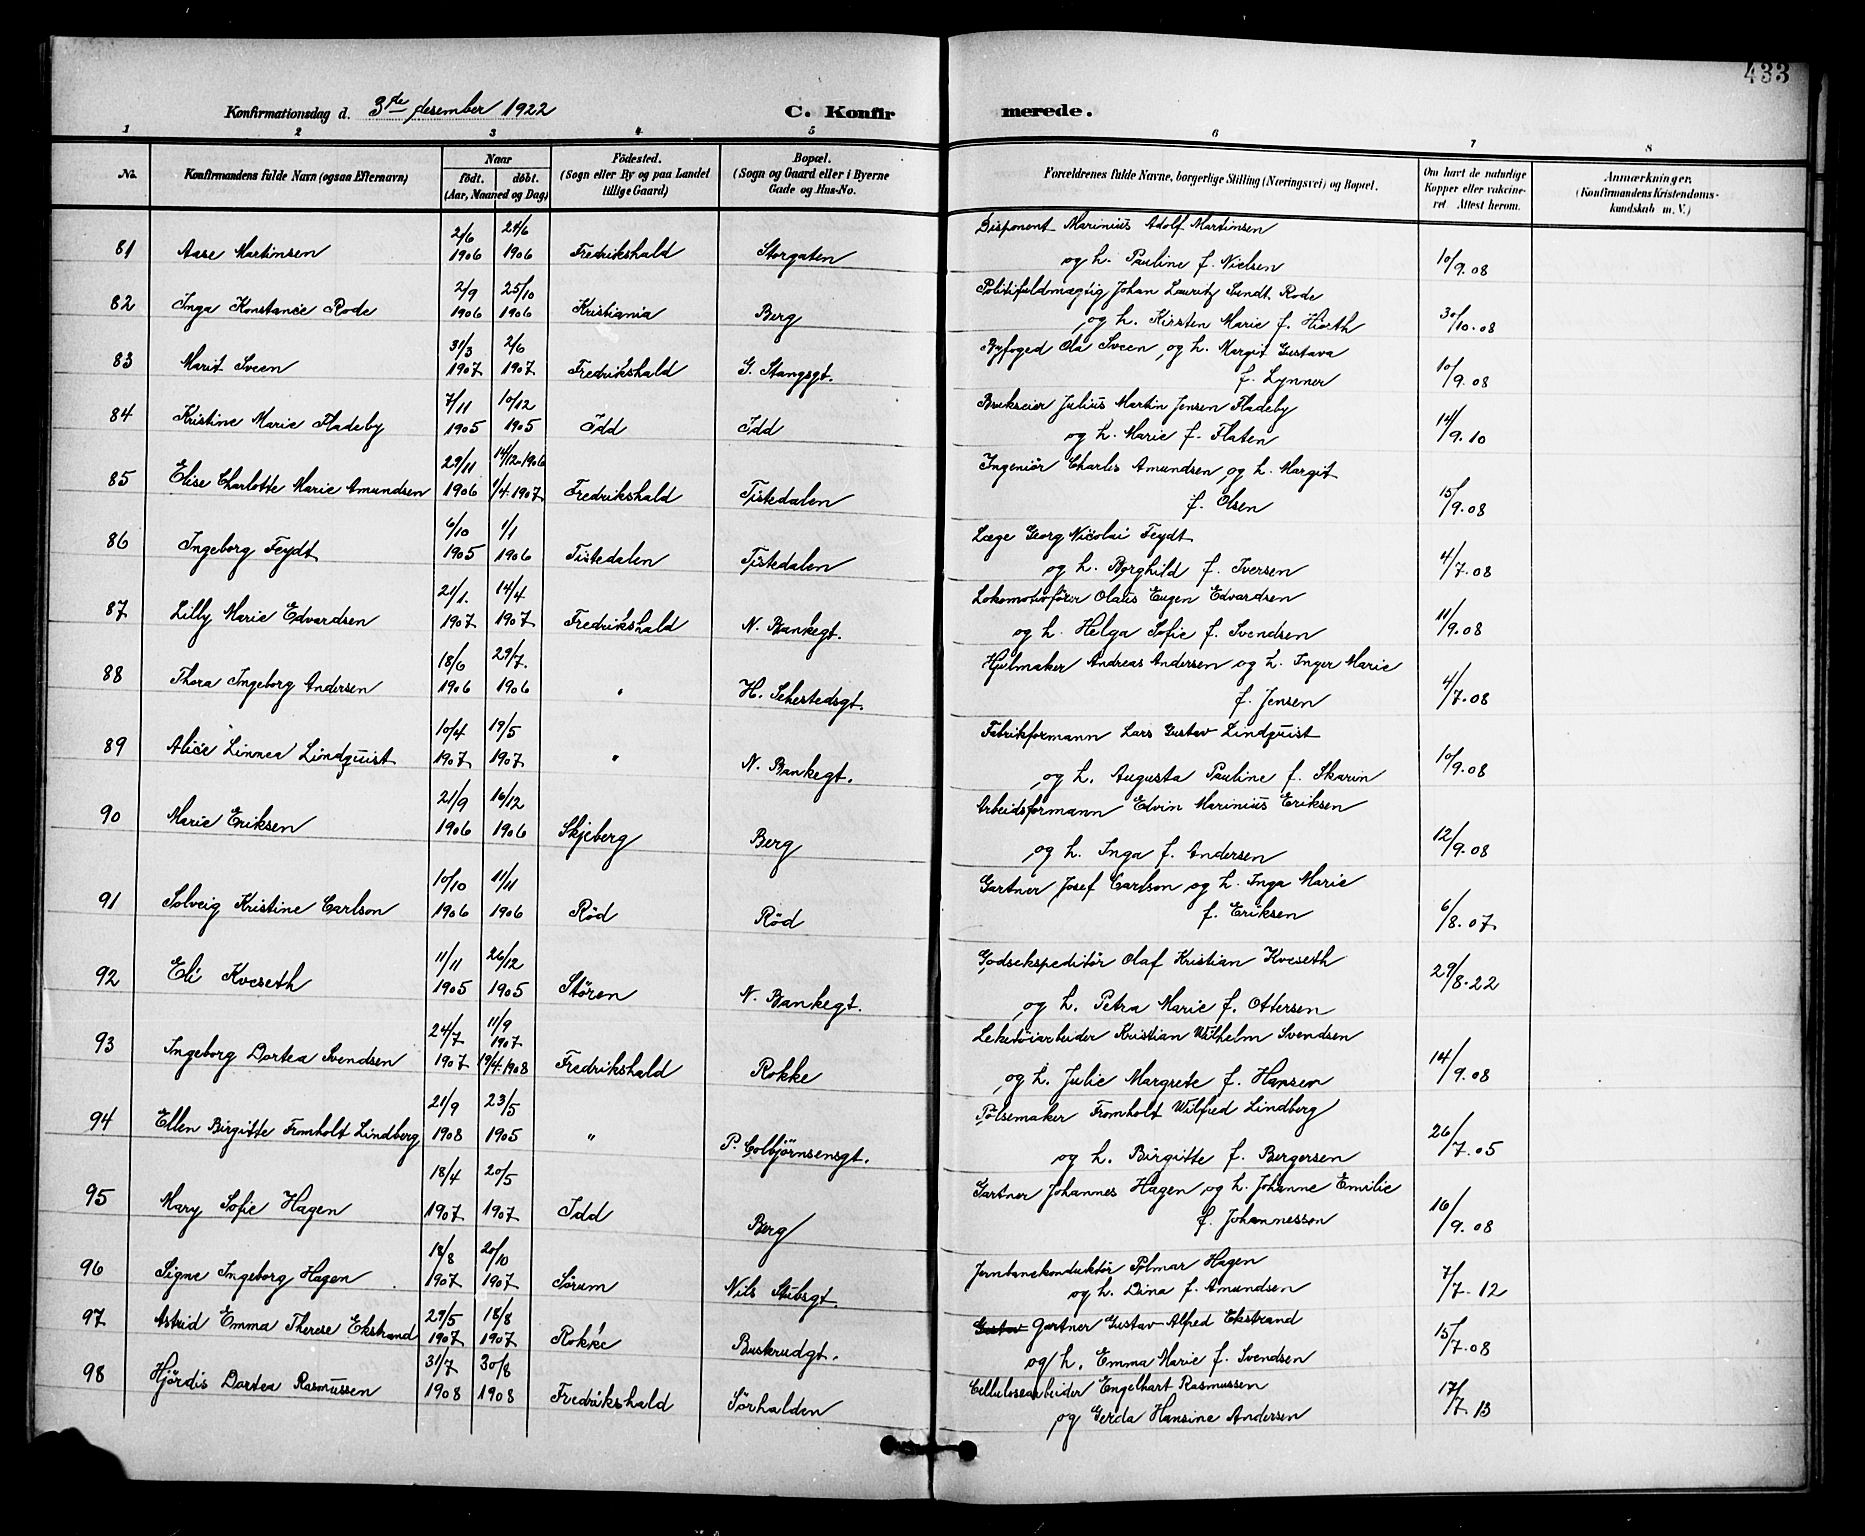 433
Konfirmationsdag d. 3de desember 1922 C. Konfir merede.
1 2 3 4 5 6 7 8
No. Konfirmandens fulde Navn (ogsaa Efternavn) Naar födt. döbt. (Aar, Maaned og Dag) Födested. (Sogn eller By og paa Landet tillige Gaard) Bopæl. (Sogn og Gaard eller i Byerne Gade og Hus-No. Forældrenes fulde Navne, borgerlige Stilling (Næringsvei) og Bopæl. Om havt de naturlige Kopper eller vakcineret. Attest herom. Anmærkninger, (Konfirmandens Kristendomskundskab m. V.)
81 Aase Martinsen 2/6 1906 21/6 1906 Fredrikshald Storgaten Disponent Marinius Adolf Martinsen
og h. Pauline f. Nielsen 10/9.08
82 Inga Konstance Rode 2/9 1906 25/10 1906 Kristiania Berg Politifuldmægtig Johan Lauritz Sundt Rode
og h. Kirsten Marie f. Hiorth 30/10.08
83 Marit Sveen 31/3 1907 2/6 1907 Fredrikshald G. Stangsgt. Byfoged Ola Sveen og h. Margit Gustava
f. Lynner 10/9.08
84 Kristine Marie Fladeby 7/11 1905 10/12 1905 Idd Idd Brukseier Julius Martin Jensen Fladeby
og h. Marie f. Flaten 14/9.10
85 Elise Charlotte Marie Amundsen 29/11 1906 14/12 1906 1/4.1907 Fredrikshald Tistedalen Ingeniör Charles Amundsen og h. Margit
f. Olsen 15/9.08
86 Ingeborg Feydt 6/10 1905 1/1 1906 Tistedalen Tistedalen Læge Georg Nicolai Feydt
og h. Borghild f. Iversen 4/7.08
87 Lilly Marie Edvardsen 21/1. 1907 14/4 1907 Fredrikshald N. Bankegt. Lokomotivförer Olaus Eugen Edvardsen
og h. Helga Sofie f. Svendsen 11/9.08
88 Thora Ingeborg Andersen 18/6 1906 29/7. 1906 " H. Sehestedsgt. Hjulmaker Andreas Andersen og h. Inger Marie
f. Jensen 4/7.08
89 Alice Linnea Lindquist 10/4 1907 19/5 1907 " N. Bankegt. Fabrikformann Lars Gustav Lindquist
og h. Augusta Pauline f. Skarin 10/9.08
90 Marie Eriksen 21/9 1906 16/12 1906 Skjeberg Berg Arbeidsformann Edvin Marinius Eriksen
og h. Inga f. Andersen 12/9.08
91 Solveig Kristine Carlson 10/10 1906 11/11 1906 Röd Röd Gartner Josef Carlson og h. Inga Marie
f. Eriksen 6/8.07
92 Eli Kveseth 11/11 1905 26/12 1905 Stören N. Bankegt. Godsekspeditör Olaf Kristian Kveseth
og h. Petra Marie f. Ottersen 29/8.22
93 Ingeborg Dortea Svendsen 24/7 1907 11/9 1907 19/4.1908 Fredrikshald Rokke Leketöiarbeider Kristian Wilhelm Svendsen
og h. Julie Margrete f. Hansen 14/9.08
94 Ellen Birgitte Fromholt Lindberg 21/9 1908 23/5 1905 " P. Colbjörnsensgt. Pölsemaker Fromholt Wilfred Lindberg
og h. Birgitte f. Bergersen 26/7.05
95 Mary Sofie Hagen 18/4 1907 20/5 1907 Idd Berg Gartner Johannes Hagen og h. Johanne Emilie
f. Johannesson 16/9.08
96 Signe Ingeborg Hagen 18/8 1907 20/10 1907 Sörum Nils Stubsgt. Jernbanekonduktör Hagen
og h. Dina f. Amundsen 7/7.12
97 Astrid Emma Therese Ekstrand 29/5 1907 18/8 1907 Rokke Buskrudgt. Gustav Gartner Gustav Alfred Ekstrand
og h. Emma Marie f. Svendsen 15/7.08
98 Hjördis Dortea Rasmussen 31/7 1908 30/8 1908 Fredrikshald Sörhalden Cellulosearbeider Engelhart Rasmussen
og Gerda Hansine Andersen 17/7.13